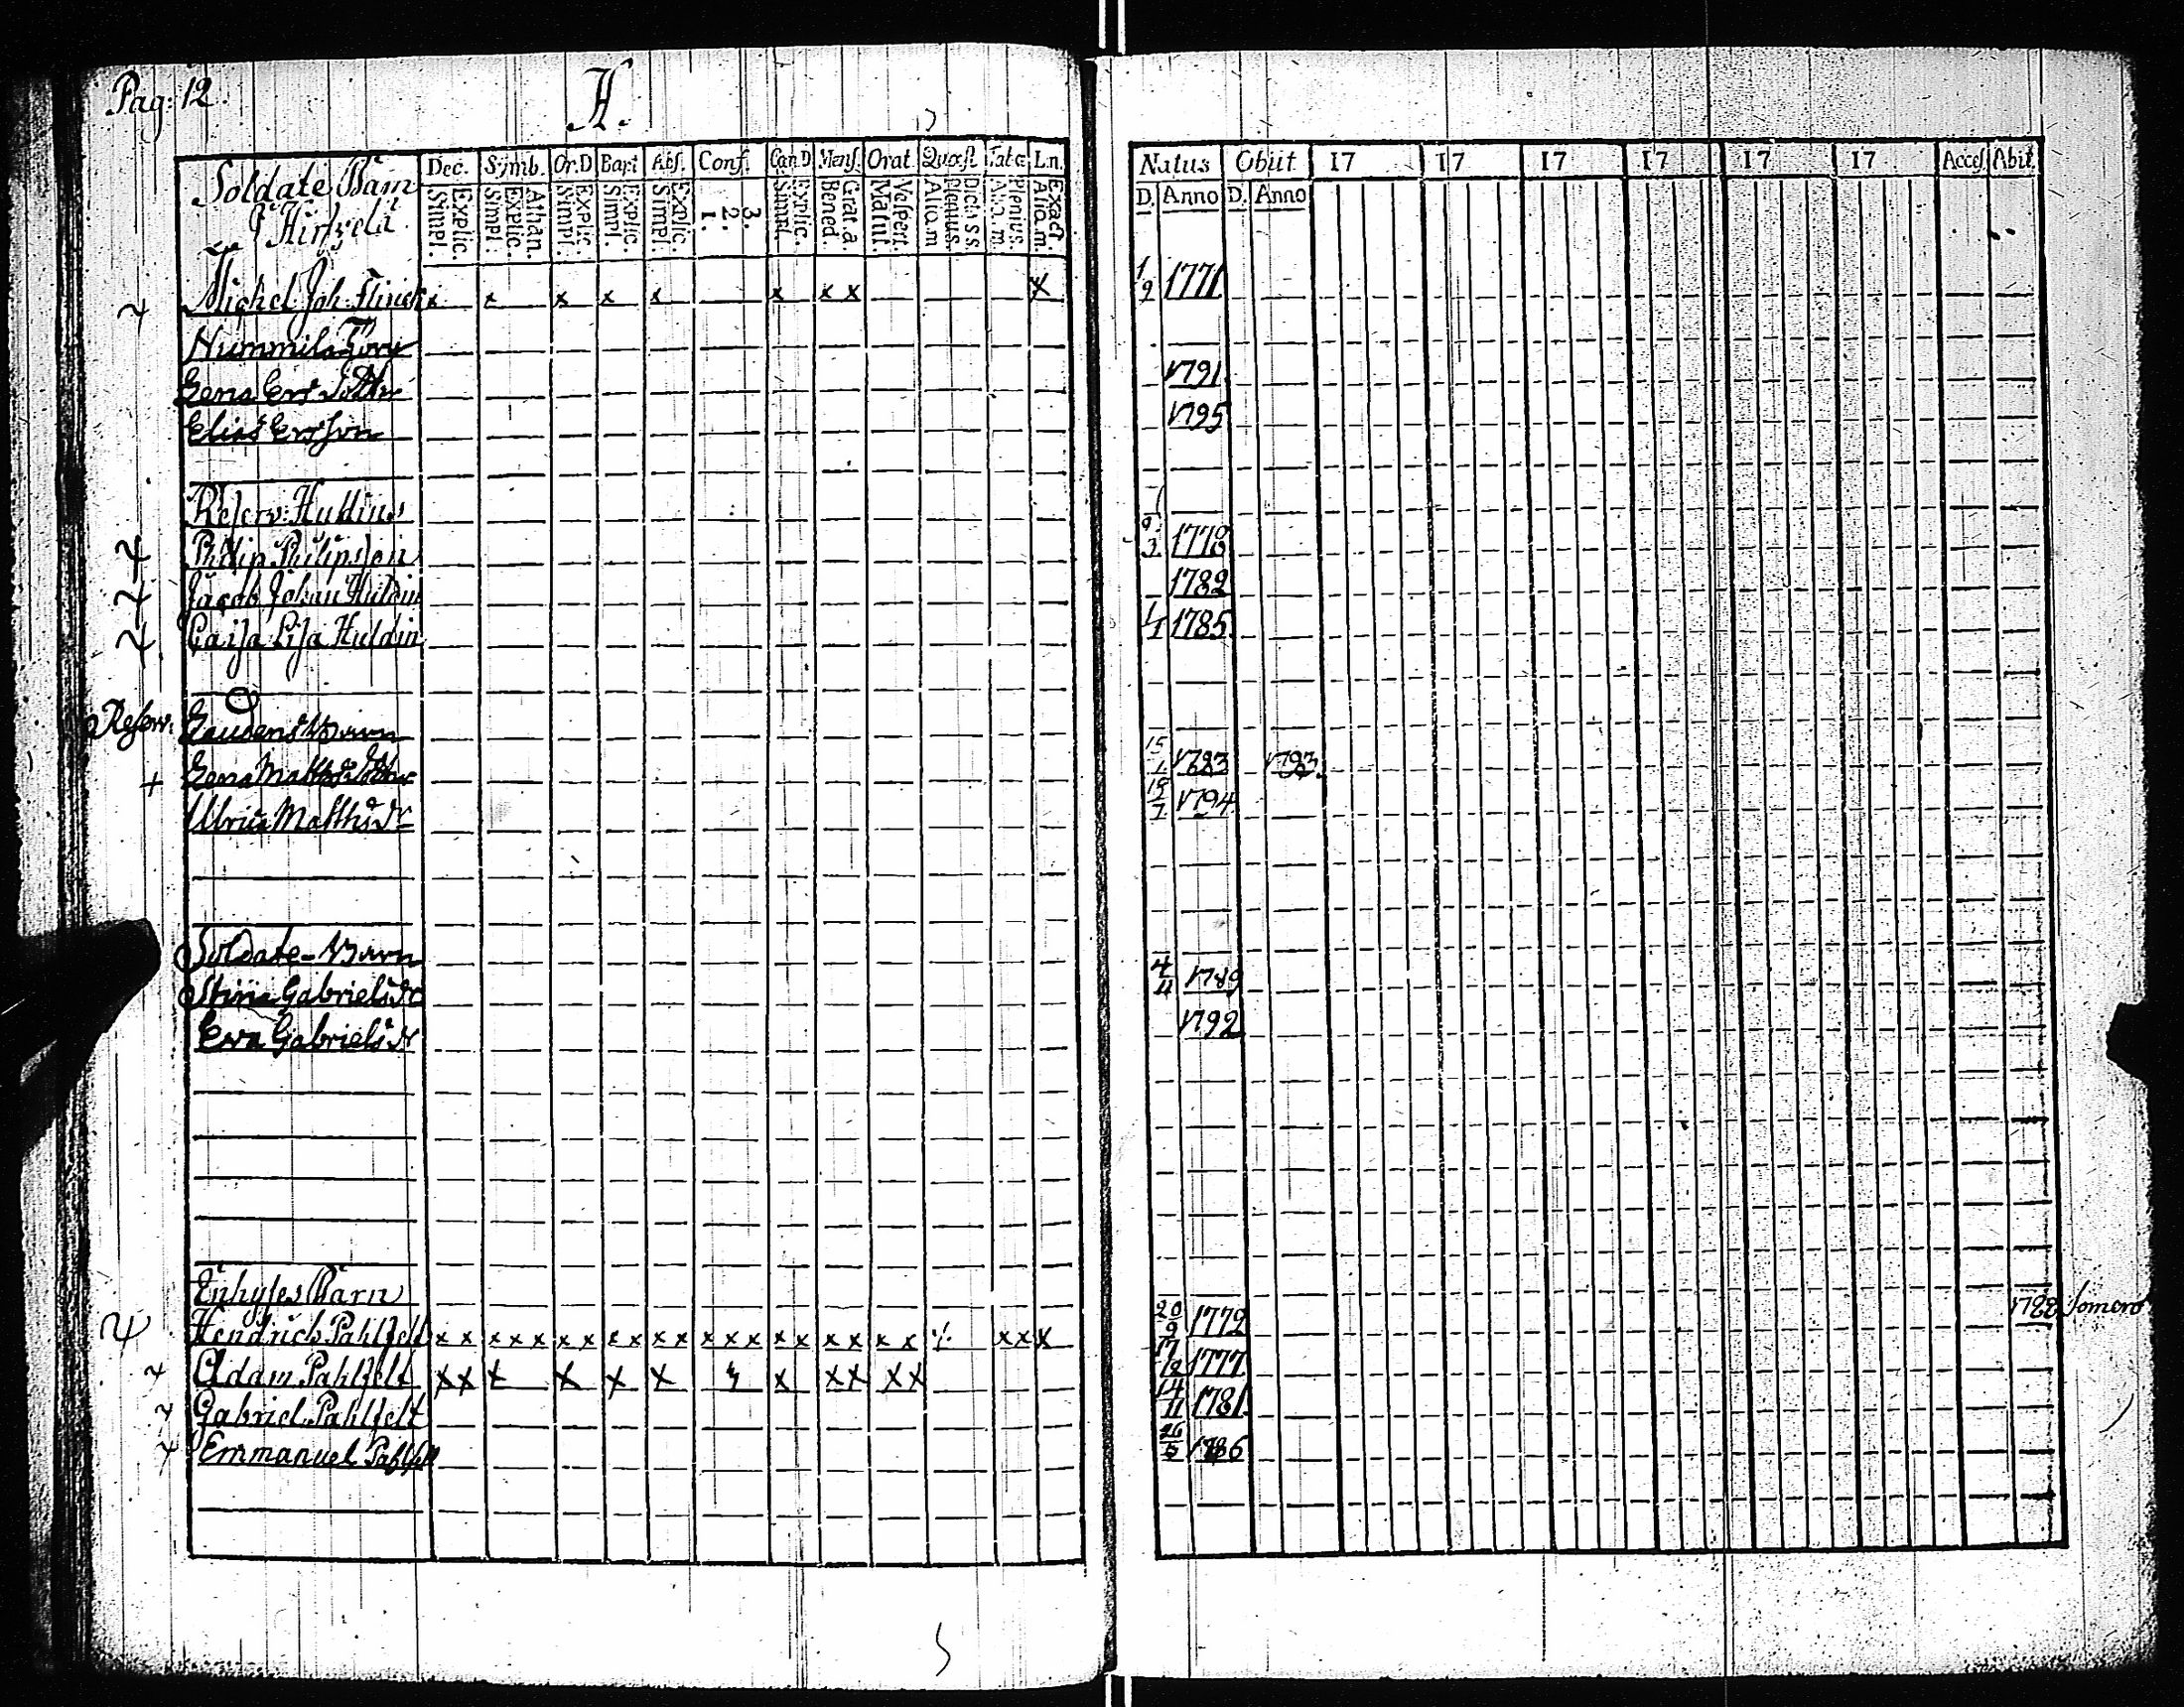 Pag: 12.
H.
Dec. Symb. Or.D Bapt Abs. Conf. Can.D Mens. Orat. Quæst Tabæ L.n.
Natus Obiit 17 17 17 17 17 17 Acces. Abit.
Soldate Barn
Simpl. Explic. Simpl. Explic. Athan. Simpl. Explic. Simpl. Explic. Simpl. Explic. 1. 2. 3. Simpl. Explic. Bened. Grat.a Matut. Vespert. Aliq.m Plenius. Dict. s s. Aliq.m Plenius. Aliq.m. Exact.
D. Anno D. Anno
Michel Joh. Flinck x x x x x x x x x 1/9 1771
Nummila Torp
Lena Ers Dotter 1791
Elias Ersson 1795
Reserv: Huldins
Philip Philipsson 3 1778
Jacob Johan Huldin 1782
Caisa Lisa Huldin 1785
Reserv. Barn
+ Lena Matts Dotter 15 1793 1793.
Ulrica Matths Dr 18/7 1794
Soldate-Barn
Stina Gabriels dr 4/4 1789
Eva Gabriels dr 1792
Enkyles Barn
Hendrich Pahlfelt x x x x x x x x x x x x x x x x x x x x x x x 20/9 1772 1788 Somero
Adam Pahlfelt x x x x x x x x x x x 17/12 1777
Gabriel Pahlfelt 14/11 1781
Emmanuel Pahlfelt 26/5 1786